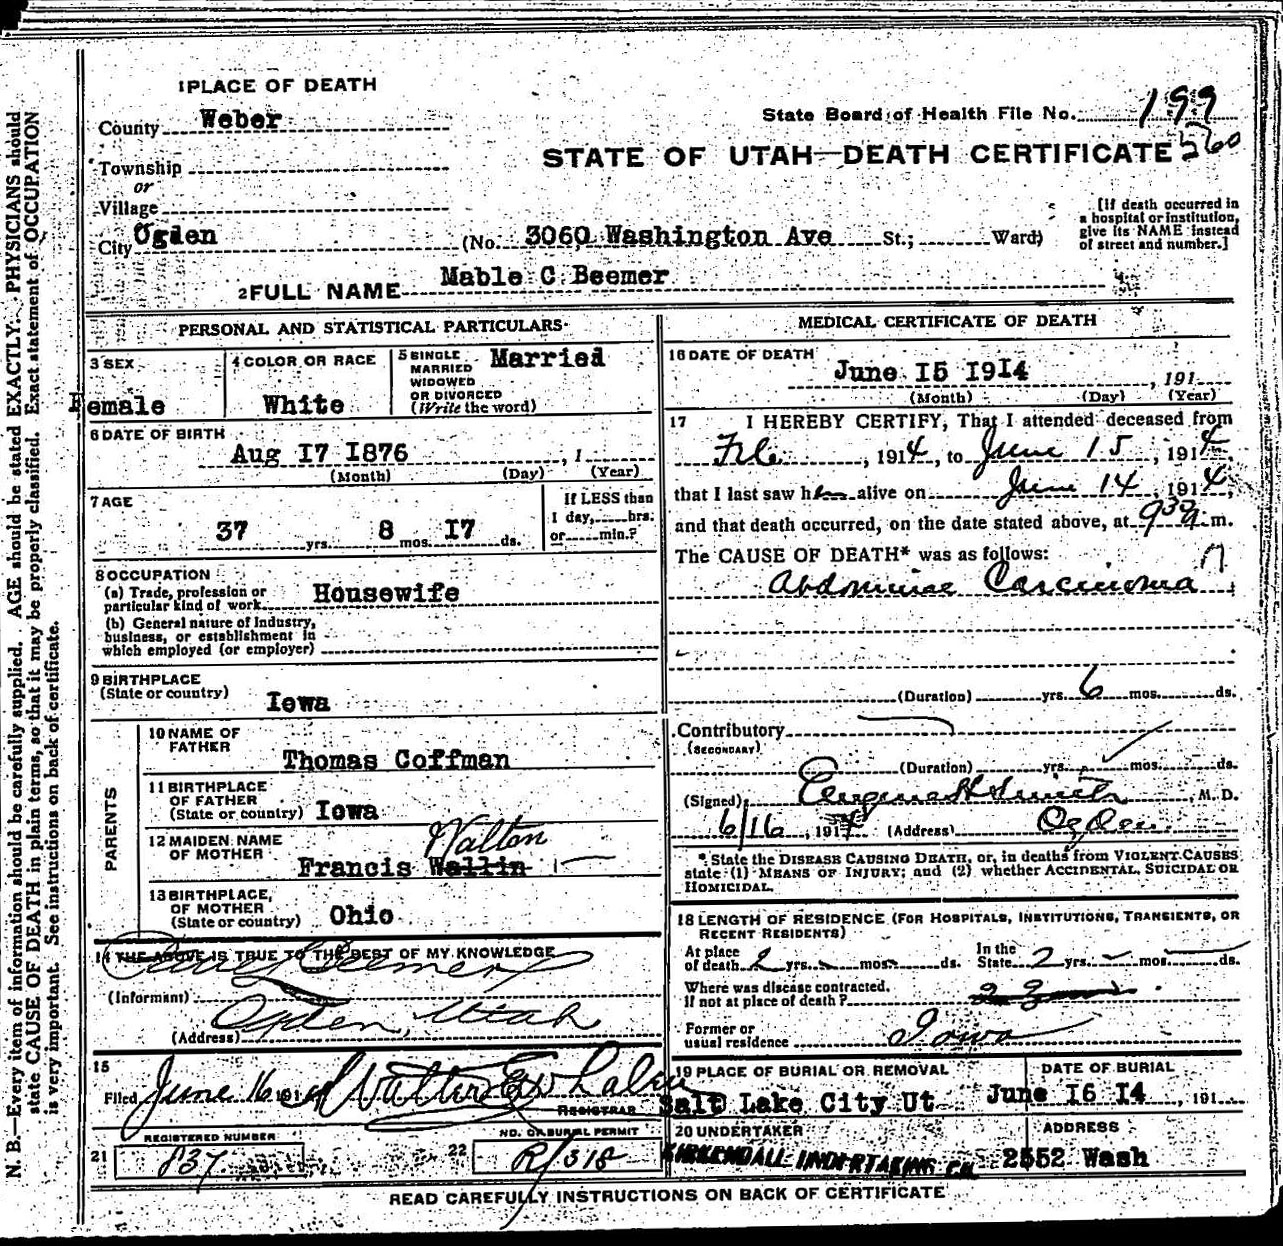 1 PLACE OF DEATH
County Weber
State Board of Health File No. 199
Township
or
STATE OF UTAH—DEATH CERTIFICATE 560
Village
City Ogden (No. 3060 Washington Ave St.; Ward)
[If death occurred in
a hospital or institution,
give its NAME instead
of street and number.]
2 FULL NAME Mable C Beemer
PERSONAL AND STATISTICAL PARTICULARS
3 SEX
Female
4 COLOR OR RACE
White
5 SINGLE
MARRIED
WIDOWED
OR DIVORCED
(Write the word)
Married
6 DATE OF BIRTH
Aug 17 1876, 1
(Month) (Day) (Year)
7 AGE
37 yrs. 8 mos. 17 ds.
If LESS than
1 day, hrs.
or min.?
8 OCCUPATION
(a) Trade, profession or
particular kind of work Housewife
(b) General nature of Industry,
business, or establishment in
which employed (or employer)
9 BIRTHPLACE
(State or country) Iowa
PARENTS
10 NAME OF
FATHER
Thomas Coffman
11 BIRTHPLACE
OF FATHER
(State or country) Iowa
12 MAIDEN NAME
OF MOTHER
Walton
Francis Wallin
13 BIRTHPLACE
OF MOTHER
(State or country) Ohio
14 THE ABOVE IS TRUE TO THE BEST OF MY KNOWLEDGE
(Informant) Beemer
(Address) Ogden, Utah
15
Filed June 16 191 Walter
REGISTRAR
REGISTERED NUMBER
21 837
NO. OF BURIAL PERMIT
22 R/318
MEDICAL CERTIFICATE OF DEATH
16 DATE OF DEATH
June 15 1914, 191
(Month) (Day) (Year)
17 I HEREBY CERTIFY, That I attended deceased from
Feb, 1914, to June 15, 1914,
that I last saw her alive on June 14 1914,
and that death occurred, on the date stated above, at 9 30 a m.
The CAUSE OF DEATH* was as follows:
Carcinoma
(Duration) yrs. 6 mos. ds.
Contributory
(SECONDARY)
(Duration) yrs. mos. ds.
(Signed) M. D.
6/16, 1914 (Address) Ogden
* State the DISEASE CAUSING DEATH, or, in deaths from VIOLENT CAUSES
state (1) MEANS OF INJURY; and (2) whether ACCIDENTAL, SUICIDAL OR
HOMICIDAL.
18 LENGTH OF RESIDENCE (FOR HOSPITALS, INSTITUTIONS, TRANSIENTS, OR
RECENT RESIDENTS)
At place
of death 2 yrs. mos. ds.
In the
State 2 yrs. mos. ds.
Where was disease contracted.
If not at place of death?
Former or
usual residence Iowa
19 PLACE OF BURIAL OR REMOVAL
Salt Lake City Ut
DATE OF BURIAL
June 16 14, 191
20 UNDERTAKER
KIRKENDALL UNDERTAKING CO.
ADDRESS
2552 Wash
READ CAREFULLY INSTRUCTIONS ON BACK OF CERTIFICATE
N. B.—Every item of information should be carefully supplied. AGE should be stated EXACTLY. PHYSICIANS should
state CAUSE OF DEATH in plain terms, so that it may be properly classified. Exact statement of OCCUPATION
is very important. See instructions on back of certificate.